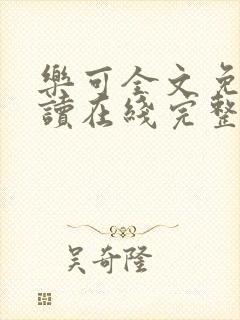 樂可全文免
讀在綫完整
吴奇隆